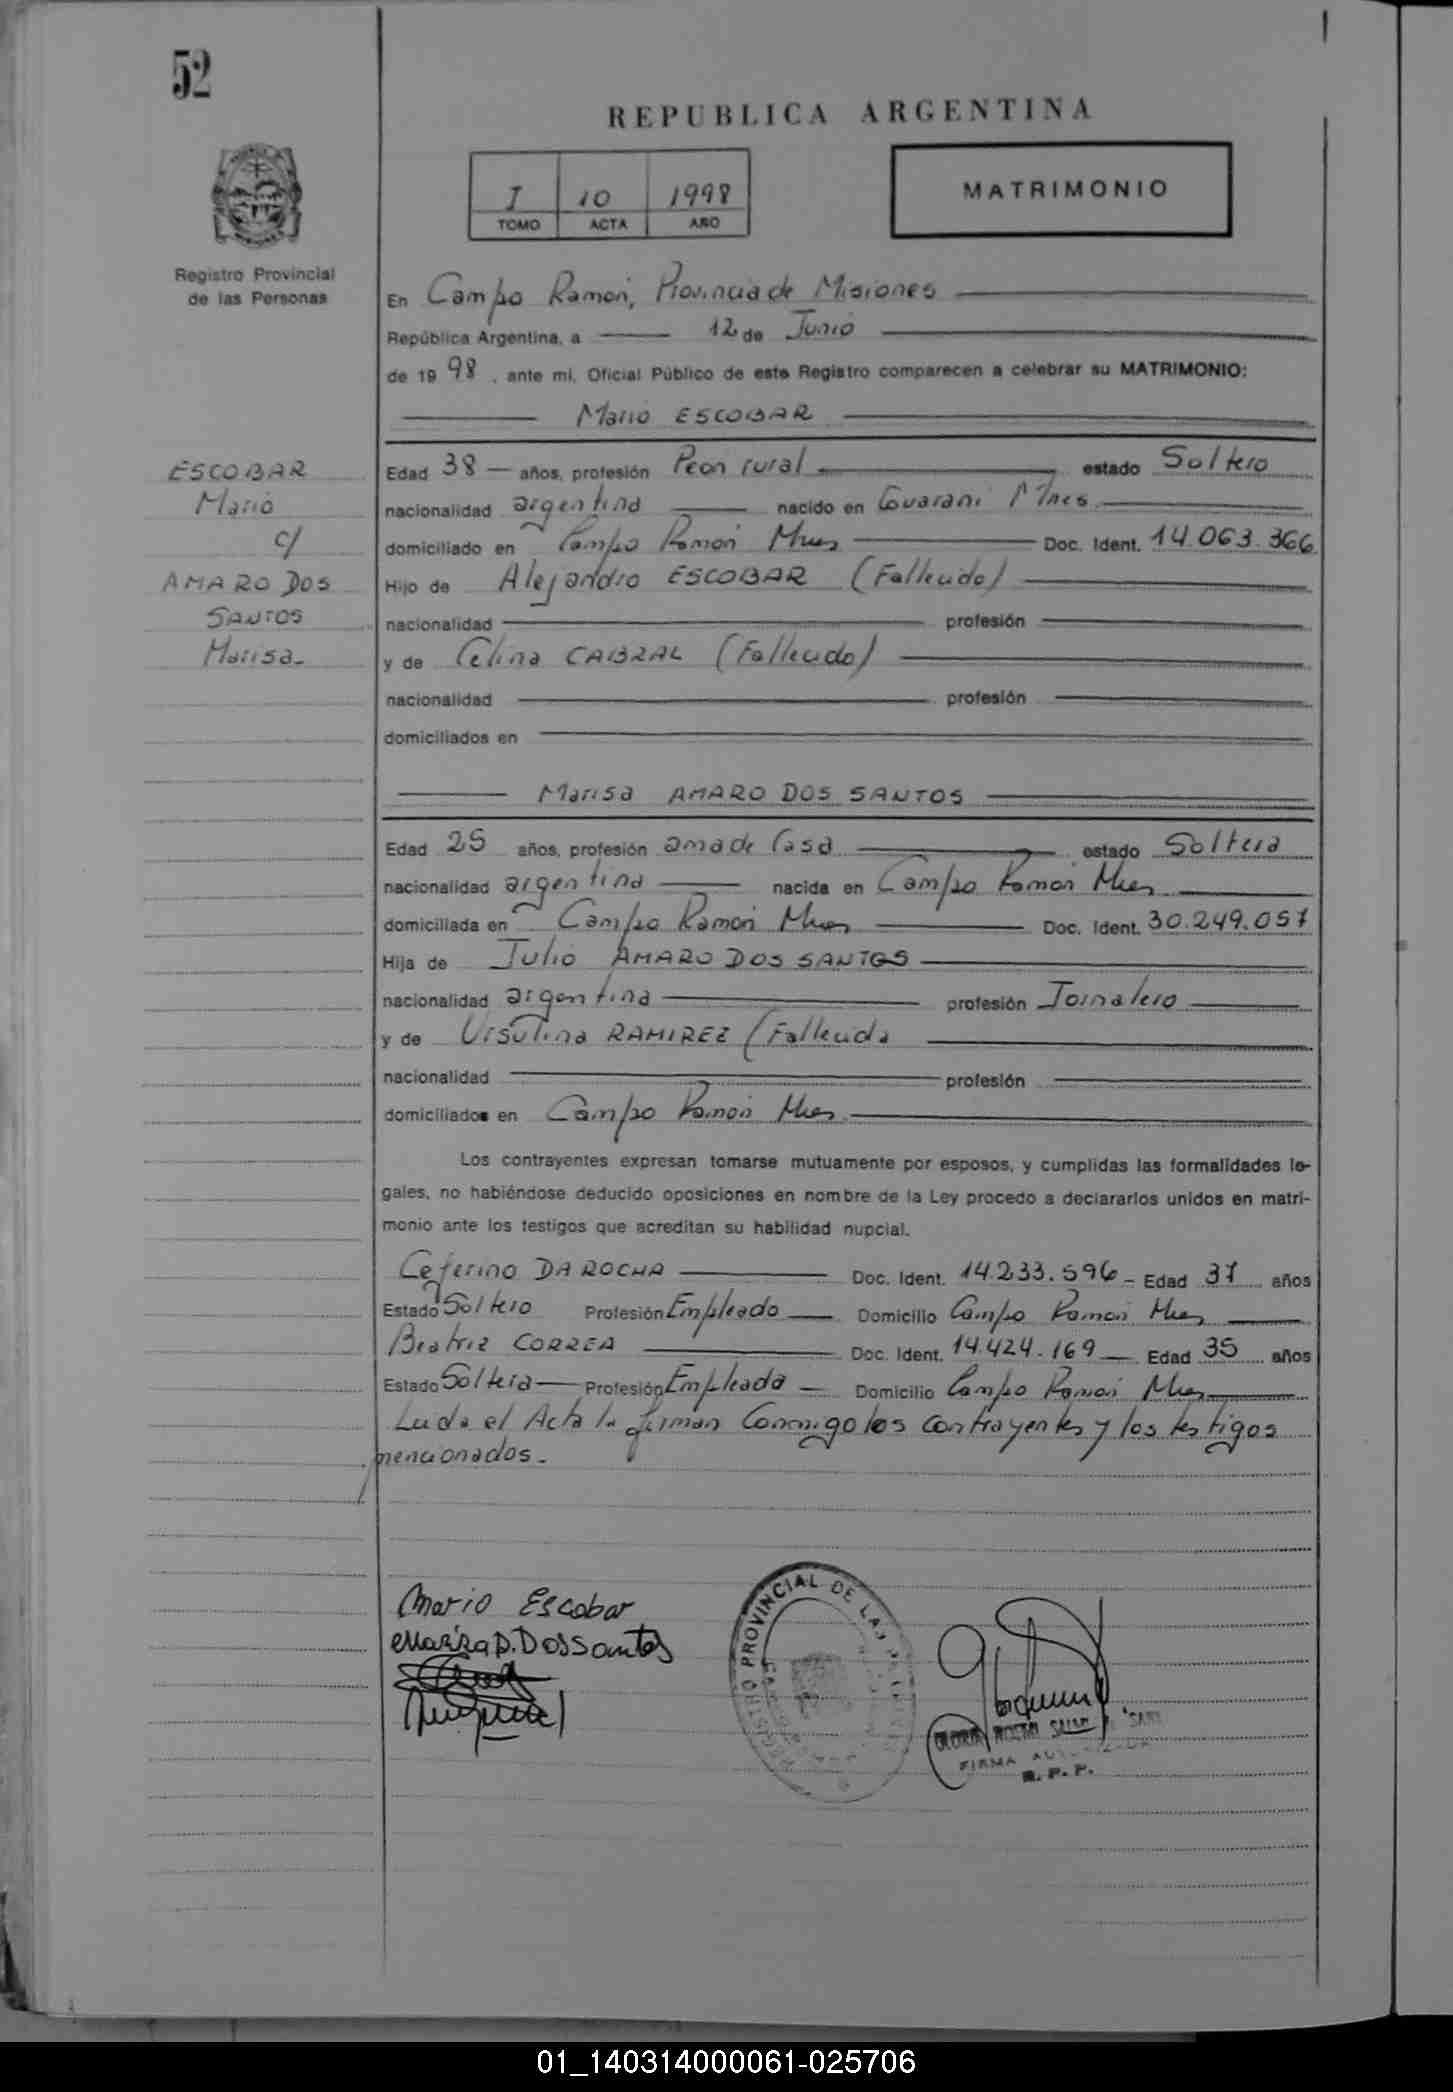 52
REPUBLICA ARGENTINA
I 10 1998
TOMO ACTA AÑO
MATRIMONIO
Registro Provincial
de las Personas
En Campo Ramon, Provincia de Misiones
República Argentina, a 12 de Junio
de 19 98 , ante mi, Oficial Público de este Registro comparecen a celebrar su MATRIMONIO:
Mario ESCOBAR
ESCOBAR
Mario
c/
AMARO DOS
SANTOS
Marisa.
Edad 38 años, profesión Peon rural estado Soltero
nacionalidad argentina nacido en Guarani Mnes
domiciliado en Campo Ramon Mnes Doc. Ident. 14.063.366
Hijo de Alejandro ESCOBAR (Fallecido)
nacionalidad profesión
y de Celina CABRAL (Fallecido)
nacionalidad profesión
domiciliados en
Marisa AMARO DOS SANTOS
Edad 25 años, profesión ama de Casa estado Soltera
nacionalidad argentina nacida en Campo Ramon Mnes
domiciliada en Campo Ramon Mnes Doc. Ident. 30.249.057
Hija de Julio AMARO DOS SANTOS
nacionalidad argentina profesión Jornalero
y de Ursulina RAMIREZ (Fallecida
nacionalidad profesión
domiciliados en Campo Ramon Mnes
Los contrayentes expresan tomarse mutuamente por esposos, y cumplidas las formalidades le-
gales, no habiéndose deducido oposiciones en nombre de la Ley procedo a declararlos unidos en matri-
monio ante los testigos que acreditan su habilidad nupcial.
Ceferino DA ROCHA Doc. Ident. 14.233.596 - Edad 37 años
Estado Soltero Profesión Empleado Domicilio Campo Ramon Mnes
Beatriz CORREA Doc. Ident. 14.424.169 Edad 35 años
Estado Soltera Profesión Empleada Domicilio Campo Ramon Mnes
Leida el Acta la firman Conmigo los contrayentes y los testigos
mencionados.
Mario Escobar
Mariza D. Dos Santos
REGISTRO PROVINCIAL DE LAS
GLORIA NOEMI
FIRMA AUTORIZADA
R. P. P.
01_140314000061-025706